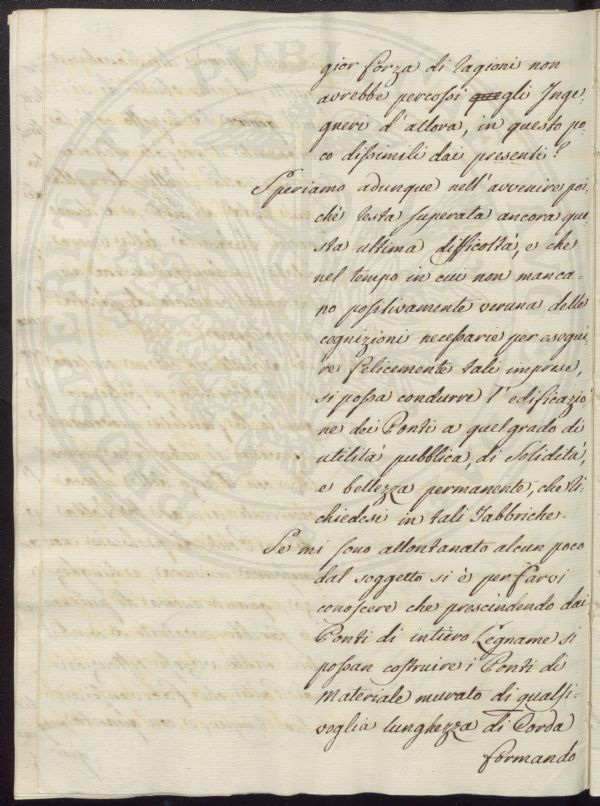 gior forza di ragioni non
avrebbe percossi quegli Inge-
gneri d'allora, in questo po-
co dissimili dai presenti?
Speriamo adunque nell'avvenire poi-
chè resta superata ancora que-
sta ultima difficoltà, e che
nel tempo in cui non manca-
no positivamente veruna delle
cognizioni necessarie per esegui-
re felicemente tali imprese,
si possa condurre l'edificazio
ne dei Ponti a quel grado di
utilità pubblica, di Solidetà,
e bellezza permanente, che ri-
chiedesi in tali Fabbriche.
Se mi sono allontanato alcun poco
dal soggetto si è per farvi
conoscere che prescindendo dai
Ponti di intiero Legname si
possan costruire i Ponti di
Materiale murato di qualsi-
voglia lunghezza di Corda
formando